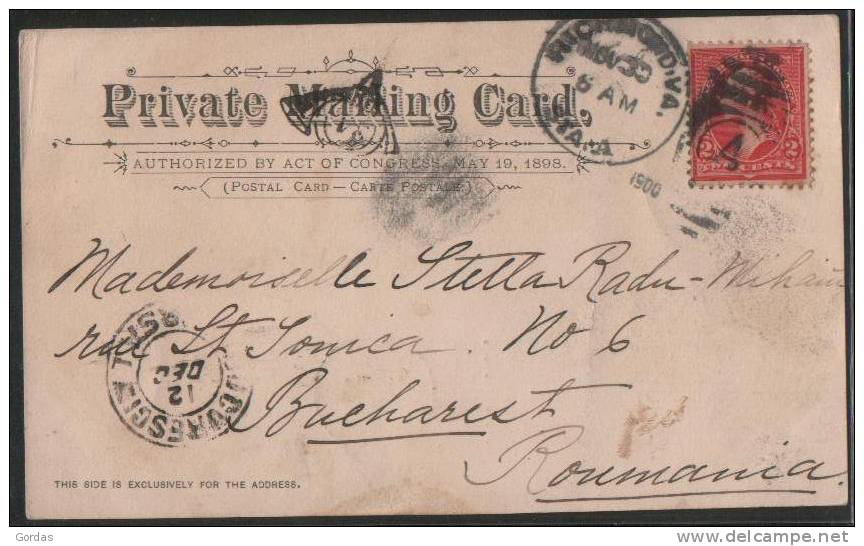 Private Mailing Card.
AUTHORIZED BY ACT OF CONGRESS, MAY 19, 1898.
(POSTAL CARD — CARTE POSTALE)
RICHMOND, VA.
NOV 30
6 AM
STA. A
1900
2 2
TWO CENTS
Mademoiselle Stella Radu-Mihaiu
rue St Ionica. No 6
Bucharest
Roumania.
BUCURESCI
12
DEC
THIS SIDE IS EXCLUSIVELY FOR THE ADDRESS.
Gordas
delcampe.net